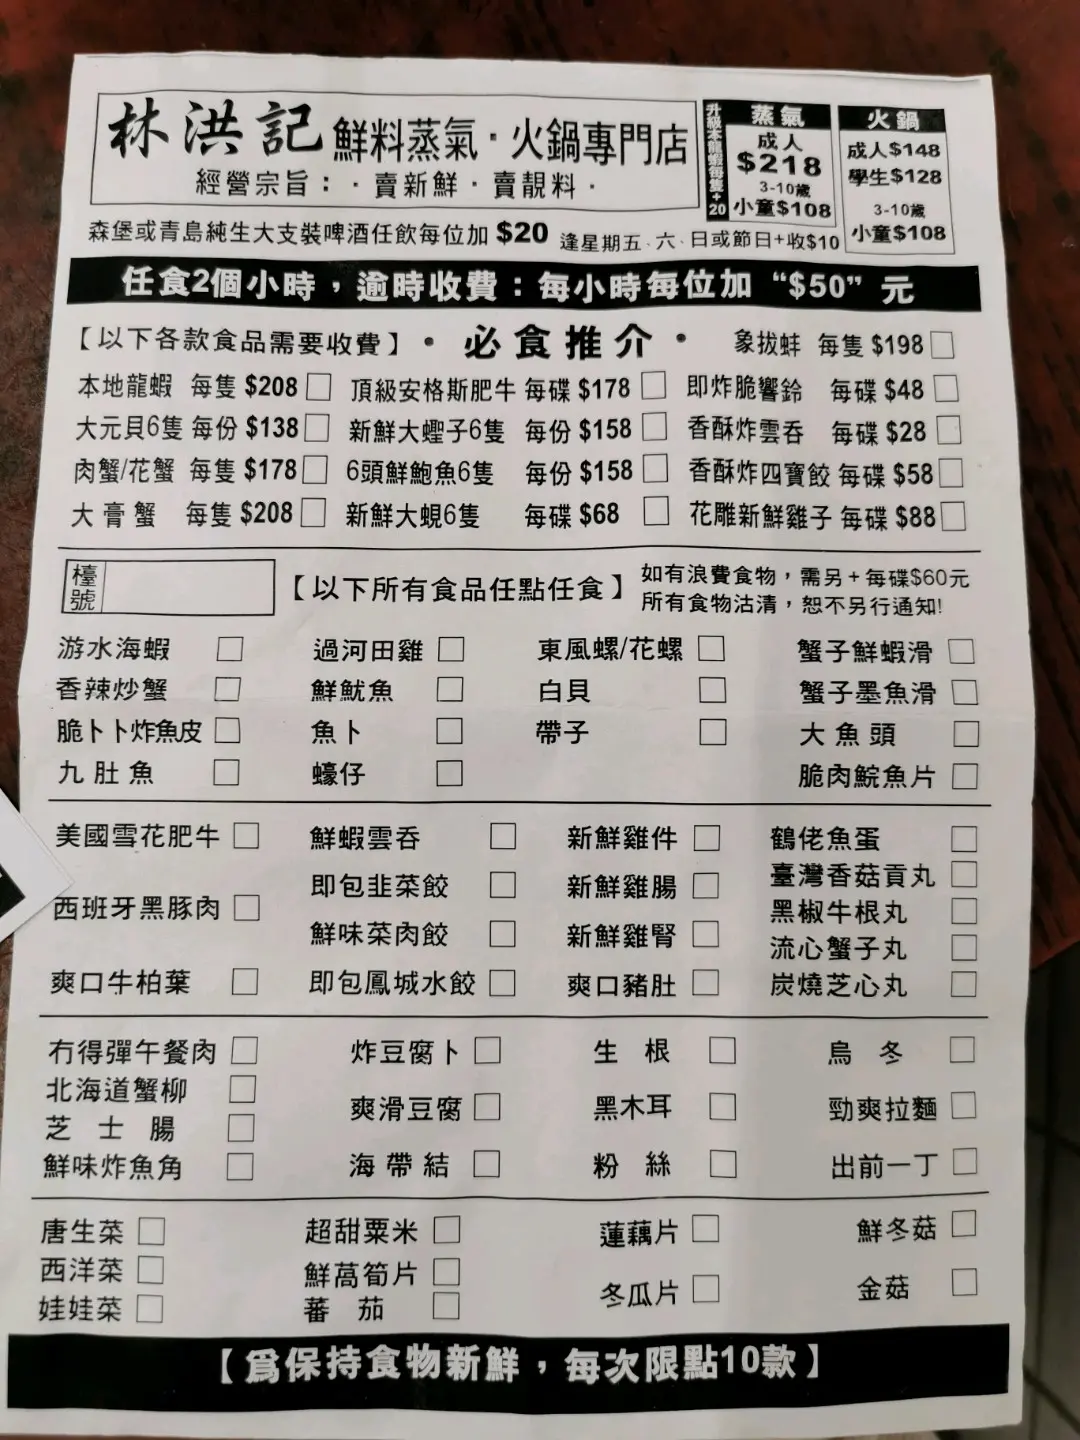 林洪記 鮮料蒸氣·火鍋專門店
經營宗旨：·賣新鮮·賣靚料·
升級本龍蝦每隻+20
蒸氣
成人
$218
3-10歲
小童$108
火鍋
成人$148
學生$128
3-10歲
小童$108
森堡或青島純生大支裝啤酒任飲每位加 $20 逢星期五．六．日或節日+收$10
任食2個小時，逾時收費：每小時每位加 “$50” 元
【以下各款食品需要收費】·必食推介· 象拔蚌 每隻 $198
本地龍蝦 每隻 $208 頂級安格斯肥牛 每碟 $178 即炸脆響鈴 每碟 $48
大元貝6隻 每份 $138 新鮮大蟶子6隻 每份 $158 香酥炸雲吞 每碟 $28
肉蟹/花蟹 每隻 $178 6頭鮮鮑魚6隻 每份 $158 香酥炸四寶餃 每碟 $58
大膏蟹 每隻 $208 新鮮大蜆6隻 每碟 $68 花雕新鮮雞子 每碟 $88
檯號 【以下所有食品任點任食】
如有浪費食物，需另+每碟$60元
所有食物沽清，恕不另行通知!
游水海蝦 過河田雞 東風螺/花螺 蟹子鮮蝦滑
香辣炒蟹 鮮魷魚 白貝 蟹子墨魚滑
脆卜卜炸魚皮 魚卜 帶子 大魚頭
九肚魚 蠔仔 脆肉鯇魚片
美國雪花肥牛 鮮蝦雲吞 新鮮雞件 鶴佬魚蛋
臺灣香菇貢丸
即包韭菜餃 新鮮雞腸
西班牙黑豚肉 黑椒牛根丸
鮮味菜肉餃 新鮮雞腎 流心蟹子丸
爽口牛柏葉 即包鳳城水餃 爽口豬肚 炭燒芝心丸
冇得彈午餐肉 炸豆腐卜 生根 烏冬
北海道蟹柳
爽滑豆腐 黑木耳 勁爽拉麵
芝士腸
鮮味炸魚角 海帶結 粉絲 出前一丁
唐生菜 超甜粟米 蓮藕片 鮮冬菇
西洋菜 鮮萵筍片
冬瓜片 金菇
娃娃菜 蕃茄
【為保持食物新鮮，每次限點10款】